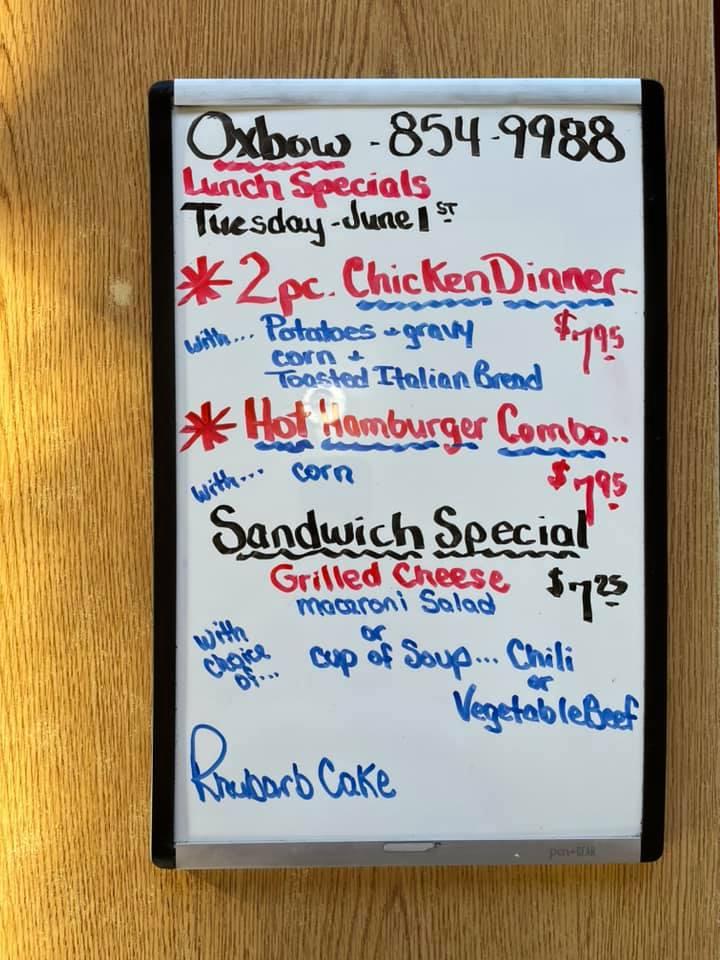 Oxbow - 854-9988
Lunch Specials
Tuesday - June 1ST
* 2pc. Chicken Dinner..
with... Potatoes + gravy $7.95
corn +
Toasted Italian Bread
* Hot Hamburger Combo..
with... corn $7.95
Sandwich Special
Grilled Cheese $7.25
macaroni Salad
with choice of... or
cup of Soup... Chili
or
Vegetable Beef
Rhubarb Cake
pen+GEAR